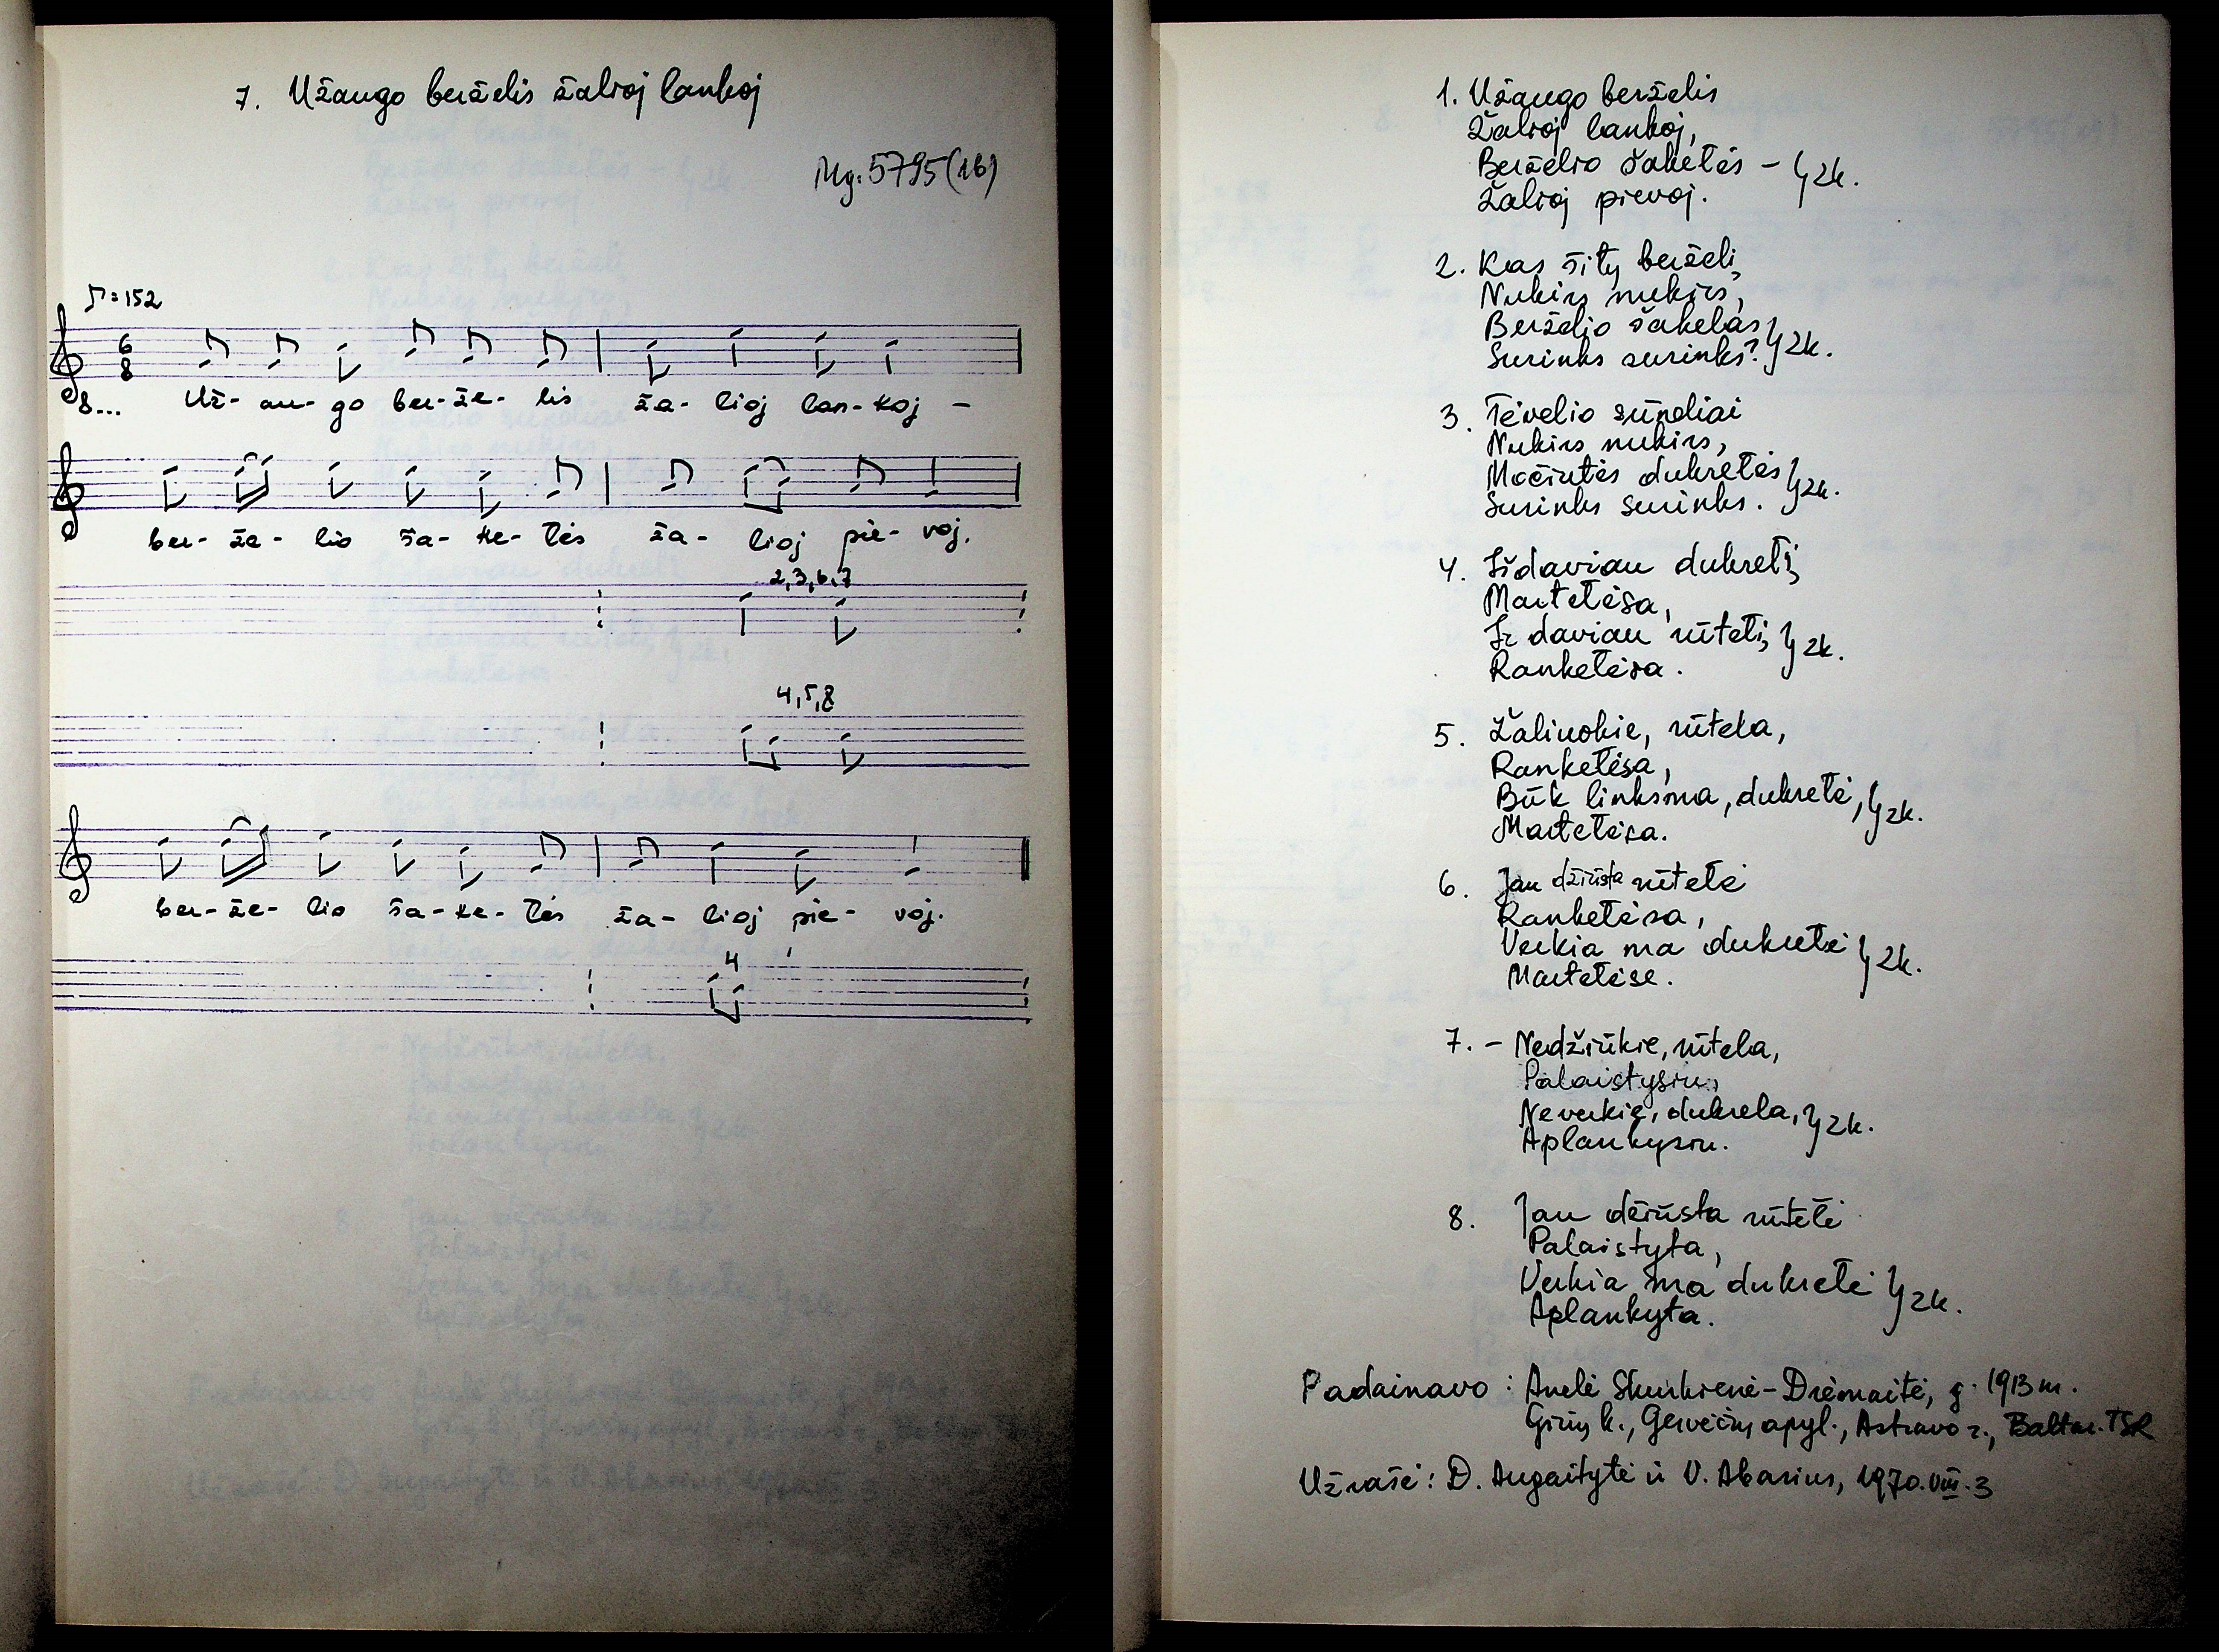 7. Užaugo berželis žalioj lankoj
Mg. 5795(16)
♪=152
6
8
8... Už- au- go ber- že- lis ža- lioj lan- koj –
ber- že- lio ša- ke- lės ža- lioj pie- voj.
2,3,6,7
4,5,8
ber- že- lio ša- ke- lės ža- lioj pie- voj.
4
1. Užaugo berželis
Žalioj lankoj,
Berželio šakelės – } 2k.
Žalioj pievoj.
2. Kas šitų berželį,
Nukirs nukirs,
Berželio šakelas } 2k.
Surinks surinks?
3. Tėvelio sūneliai
Nukirs nukirs,
Močiutės dukretės } 2k.
Surinks surinks.
4. Išdaviau dukretį,
Martelėsa,
Ir daviau rūtelį, } 2k.
Rankelėsa.
5. Žaliuokie, rūtela,
Rankelėsa,
Būk linksma, dukretė, } 2k.
Martelėsa.
6. Jau džiūsta rūtelė
Rankelėsa,
Verkia ma dukretė } 2k.
Martelėse.
7. – Nedžiūkie, rūtela,
Palaistysiu,
Neverkie, dukrela, } 2k.
Aplankysiu.
8. Jau džiūsta rūtelė
Palaistyta,
Verkia ma dukretė } 2k.
Aplankyta.
Padainavo: Anelė Skurkienė-Drėmaitė, g. 1913 m.
Girių k., Gervėčių apyl., Astravo r., Baltar. TSR
Užrašė: D. Augaitytė ir V. Abarius, 1970.VIII.3